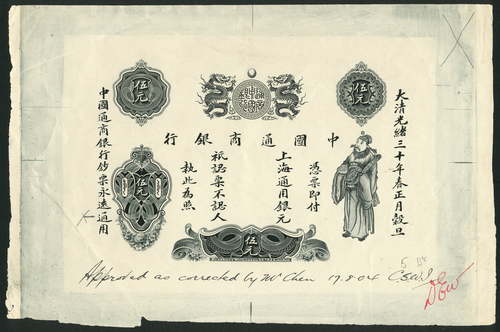 伍元
伍元
中國通商銀行
大清光緒三十年春正月穀旦
憑票即付
上海通用銀元
祇認票不認人
執此為照
中國通商銀行鈔票永遠通用
伍元
伍元
Approved as corrected by Mr Chen 17.8.04